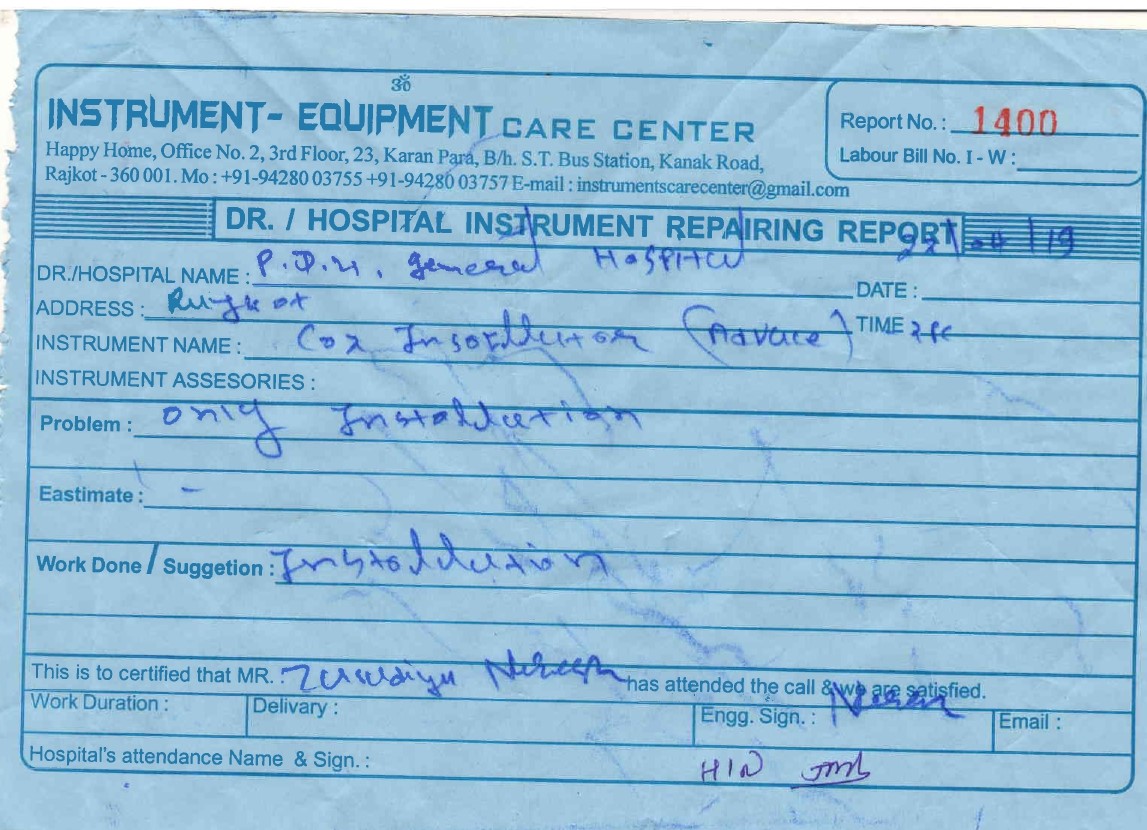 ॐ
INSTRUMENT- EQUIPMENT CARE CENTER
Happy Home, Office No. 2, 3rd Floor, 23, Karan Para, B/h. S.T. Bus Station, Kanak Road,
Rajkot - 360 001. Mo : +91-94280 03755 +91-94280 03757 E-mail : instrumentscarecenter@gmail.com
Report No. : 1400
Labour Bill No. I - W :
DR. / HOSPITAL INSTRUMENT REPAIRING REPORT
DR./HOSPITAL NAME : P.D.U. General Hospital
DATE :
ADDRESS : Rajkot
TIME
INSTRUMENT NAME : Co2 Insofllator
INSTRUMENT ASSESORIES :
Problem : only Installation
Eastimate : -
Work Done / Suggetion : Installation
This is to certified that MR. has attended the call & we are satisfied.
Work Duration :
Delivary :
Engg. Sign. :
Email :
Hospital's attendance Name & Sign. : HIN